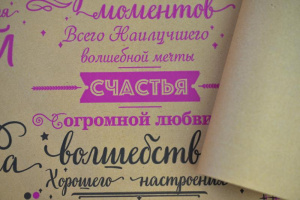 моментов
Всего Наилучшего
волшебной мечты
СЧАСТЬЯ
огромной любви
волшебств
Хорошего настроения